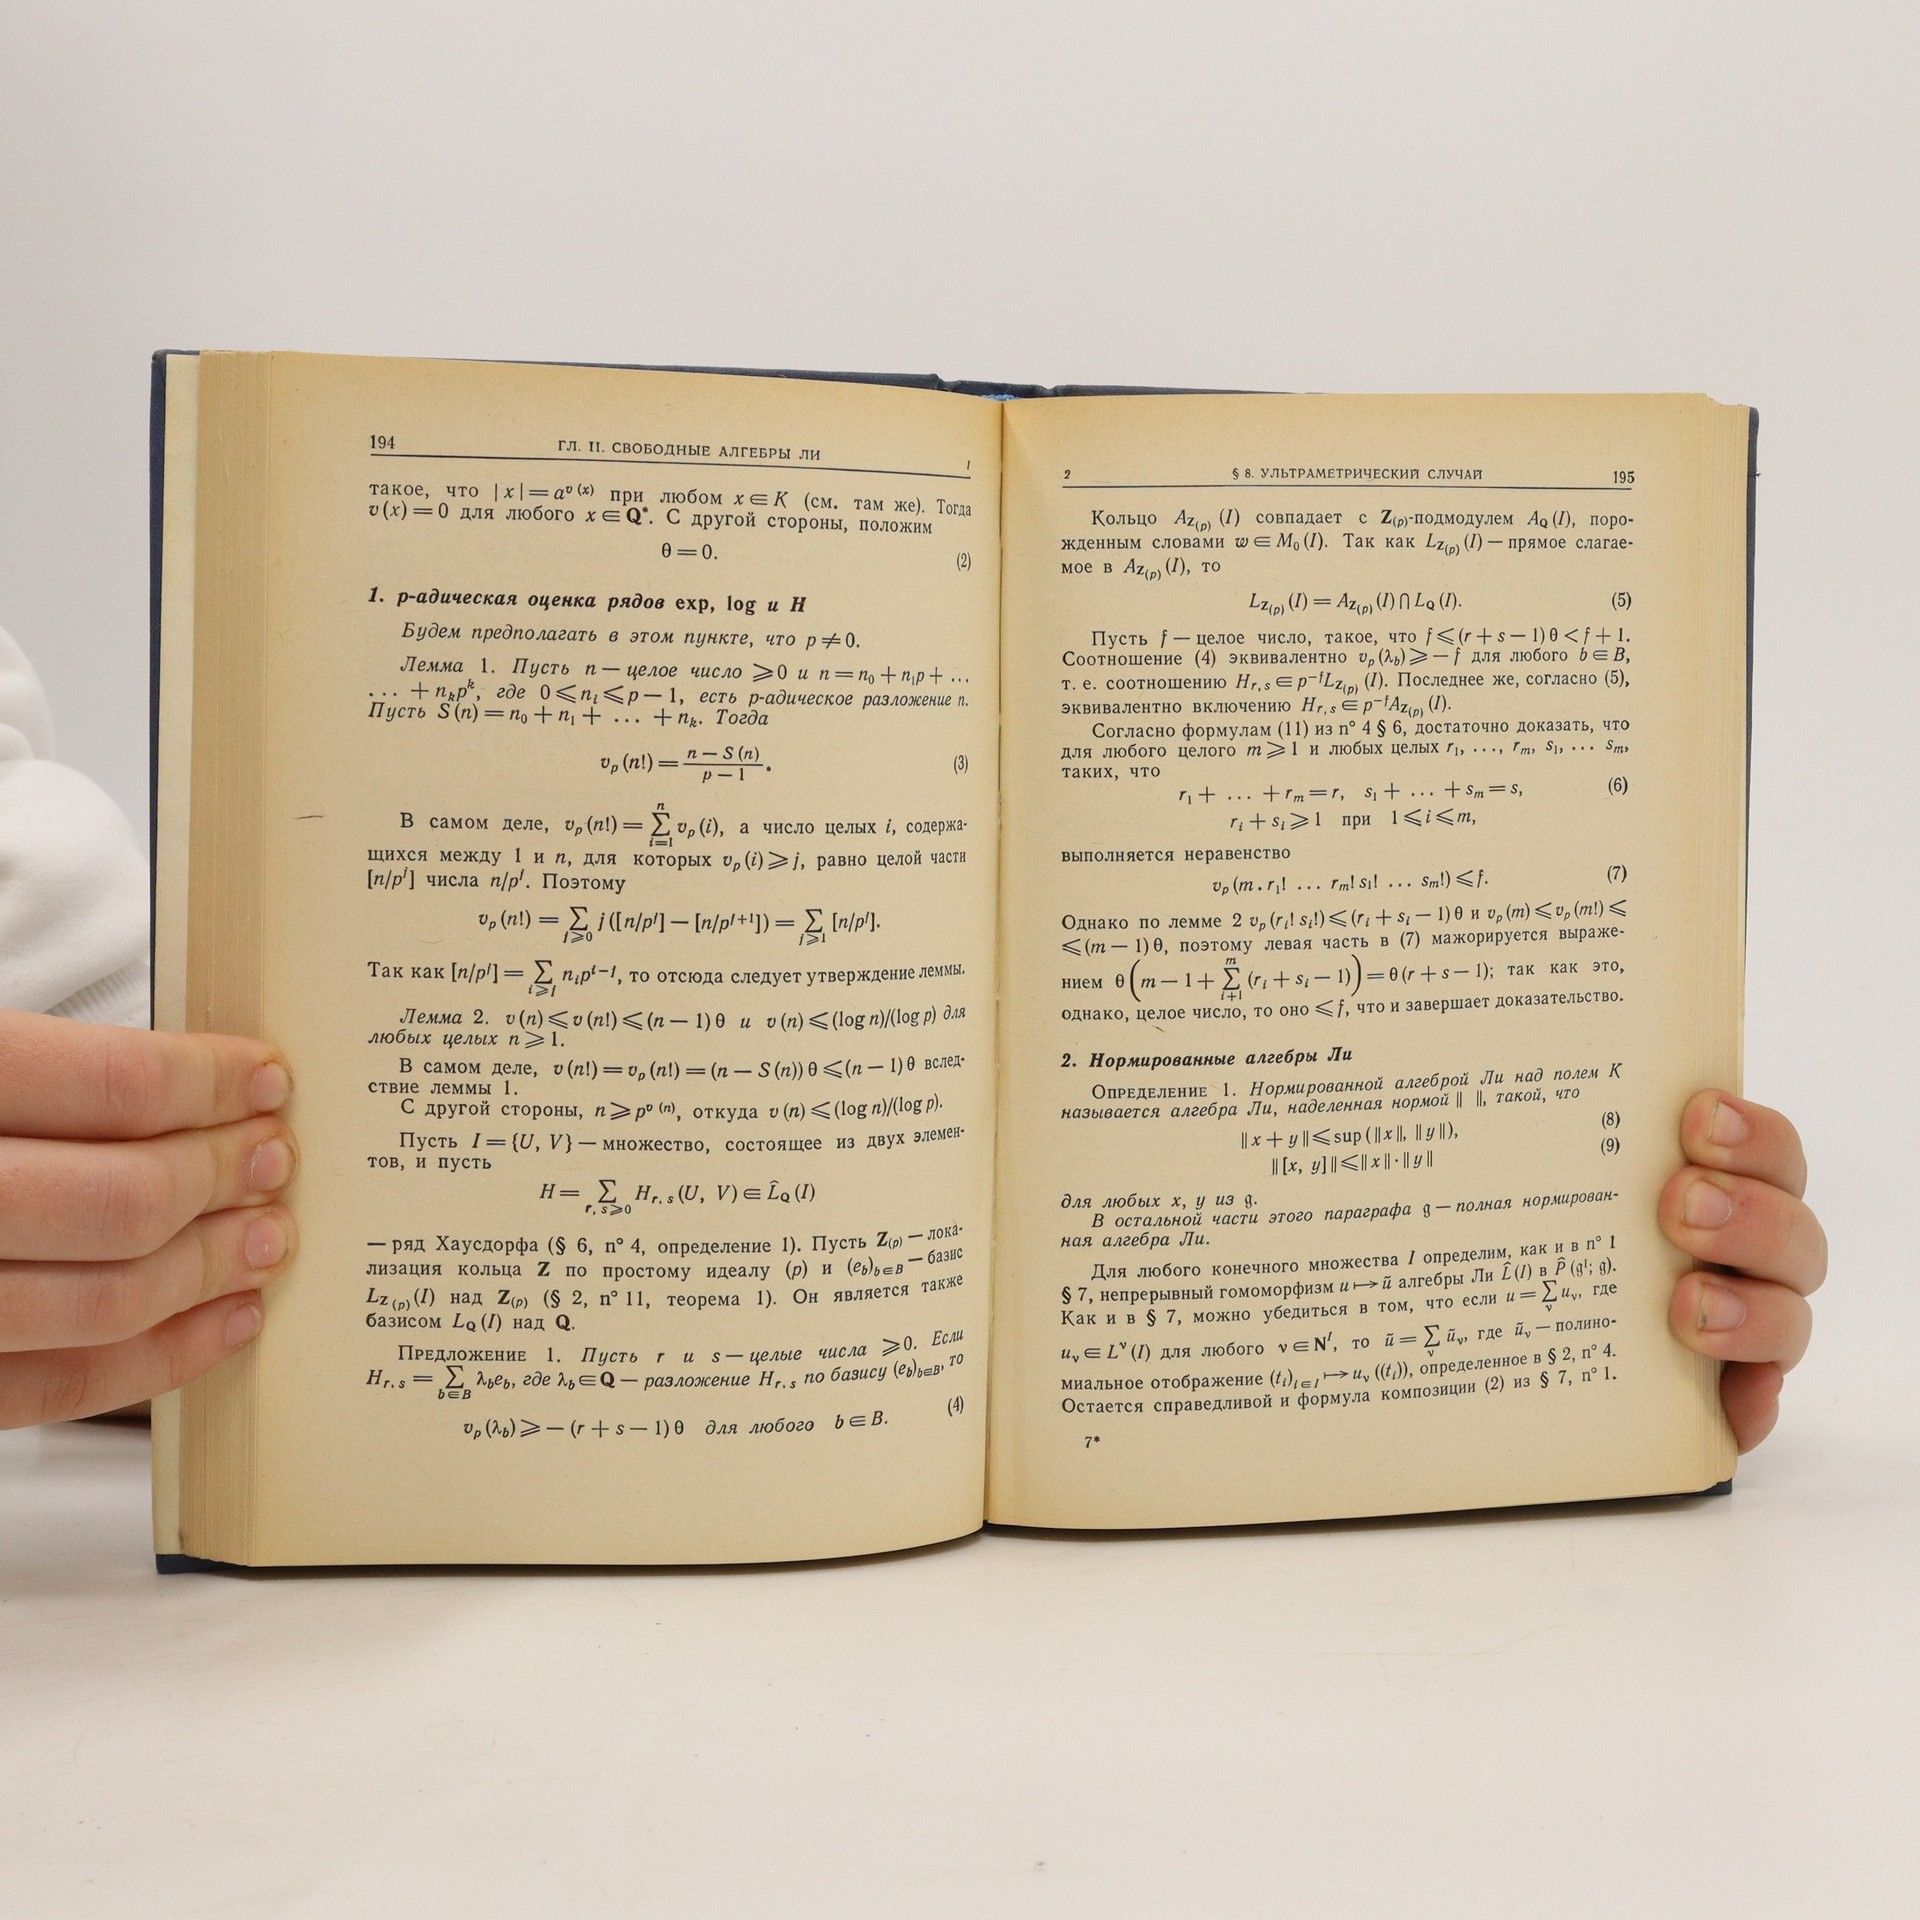 194
ГЛ. II. СВОБОДНЫЕ АЛГЕБРЫ ЛИ
1
такое, что |x| = a^{v(x)} при любом x ∈ K (см. там же). Тогда
v(x) = 0 для любого x ∈ Q*. С другой стороны, положим
θ = 0. (2)
1. p-адическая оценка рядов exp, log и H
Будем предполагать в этом пункте, что p ≠ 0.
Лемма 1. Пусть n — целое число ⩾ 0 и n = n₀ + n₁p + ...
... + n_k p^k, где 0 ⩽ n_i ⩽ p − 1, есть p-адическое разложение n.
Пусть S(n) = n₀ + n₁ + ... + n_k. Тогда
v_p(n!) = \frac{n − S(n)}{p − 1}. (3)
В самом деле, v_p(n!) = \sum_{i=1}^{n} v_p(i), а число целых i, содержа-
щихся между 1 и n, для которых v_p(i) ⩾ j, равно целой части
[n/p^j] числа n/p^j. Поэтому
v_p(n!) = \sum_{j⩾0} j([n/p^j] − [n/p^{j+1}]) = \sum_{j⩾1} [n/p^j].
Так как [n/p^j] = \sum_{i⩾j} n_i p^{i−j}, то отсюда следует утверждение леммы.
Лемма 2. v(n) ⩽ v(n!) ⩽ (n − 1)θ и v(n) ⩽ (log n)/(log p) для
любых целых n ⩾ 1.
В самом деле, v(n!) = v_p(n!) = (n − S(n))θ ⩽ (n − 1)θ вслед-
ствие леммы 1.
С другой стороны, n ⩾ p^{v(n)}, откуда v(n) ⩽ (log n)/(log p).
Пусть I = {U, V} — множество, состоящее из двух элемен-
тов, и пусть
H = \sum_{r, s⩾0} H_{r, s}(U, V) ∈ \hat{L}_Q(I)
— ряд Хаусдорфа (§ 6, n° 4, определение 1). Пусть Z_{(p)} — лока-
лизация кольца Z по простому идеалу (p) и (e_b)_{b∈B} — базис
L_{Z_{(p)}}(I) над Z_{(p)} (§ 2, n° 11, теорема 1). Он является также
базисом L_Q(I) над Q.
Предложение 1. Пусть r и s — целые числа ⩾ 0. Если
H_{r, s} = \sum_{b∈B} λ_b e_b, где λ_b ∈ Q — разложение H_{r, s} по базису (e_b)_{b∈B}, то
v_p(λ_b) ⩾ − (r + s − 1)θ для любого b ∈ B. (4)
2
§ 8. УЛЬТРАМЕТРИЧЕСКИЙ СЛУЧАЙ
195
Кольцо A_{Z_{(p)}}(I) совпадает с Z_{(p)}-подмодулем A_Q(I), поро-
жденным словами w ∈ M₀(I). Так как L_{Z_{(p)}}(I) — прямое слагае-
мое в A_{Z_{(p)}}(I), то
L_{Z_{(p)}}(I) = A_{Z_{(p)}}(I) ∩ L_Q(I). (5)
Пусть f — целое число, такое, что f ⩽ (r + s − 1)θ < f + 1.
Соотношение (4) эквивалентно v_p(λ_b) ⩾ − f для любого b ∈ B,
т. е. соотношению H_{r, s} ∈ p^{−f}L_{Z_{(p)}}(I). Последнее же, согласно (5),
эквивалентно включению H_{r, s} ∈ p^{−f}A_{Z_{(p)}}(I).
Согласно формулам (11) из n° 4 § 6, достаточно доказать, что
для любого целого m ⩾ 1 и любых целых r₁, ..., r_m, s₁, ... s_m,
таких, что
r₁ + ... + r_m = r, s₁ + ... + s_m = s, (6)
r_i + s_i ⩾ 1 при 1 ⩽ i ⩽ m,
выполняется неравенство
v_p(m . r₁! ... r_m! s₁! ... s_m!) ⩽ f. (7)
Однако по лемме 2 v_p(r_i! s_i!) ⩽ (r_i + s_i − 1)θ и v_p(m) ⩽ v_p(m!) ⩽
⩽ (m − 1)θ, поэтому левая часть в (7) мажорируется выраже-
нием θ(m − 1 + \sum_{i+1}^{m} (r_i + s_i − 1)) = θ(r + s − 1); так как это,
однако, целое число, то оно ⩽ f, что и завершает доказательство.
2. Нормированные алгебры Ли
Определение 1. Нормированной алгеброй Ли над полем K
называется алгебра Ли, наделенная нормой ‖ ‖, такой, что
‖x + y‖ ⩽ sup(‖x‖, ‖y‖), (8)
‖[x, y]‖ ⩽ ‖x‖·‖y‖ (9)
для любых x, y из 𝔤.
В остальной части этого параграфа 𝔤 — полная нормирован-
ная алгебра Ли.
Для любого конечного множества I определим, как и в n° 1
§ 7, непрерывный гомоморфизм u ↦ ũ алгебры Ли \hat{L}(I) в \hat{P}(𝔤^I; 𝔤).
Как и в § 7, можно убедиться в том, что если u = \sum_ν u_ν, где
u_ν ∈ L^ν(I) для любого ν ∈ N^I, то ũ = \sum_ν ũ_ν, где ũ_ν — полино-
миальное отображение (t_i)_{i∈I} ↦ u_ν((t_i)), определенное в § 2, n° 4.
Остается справедливой и формула композиции (2) из § 7, n° 1.
7*